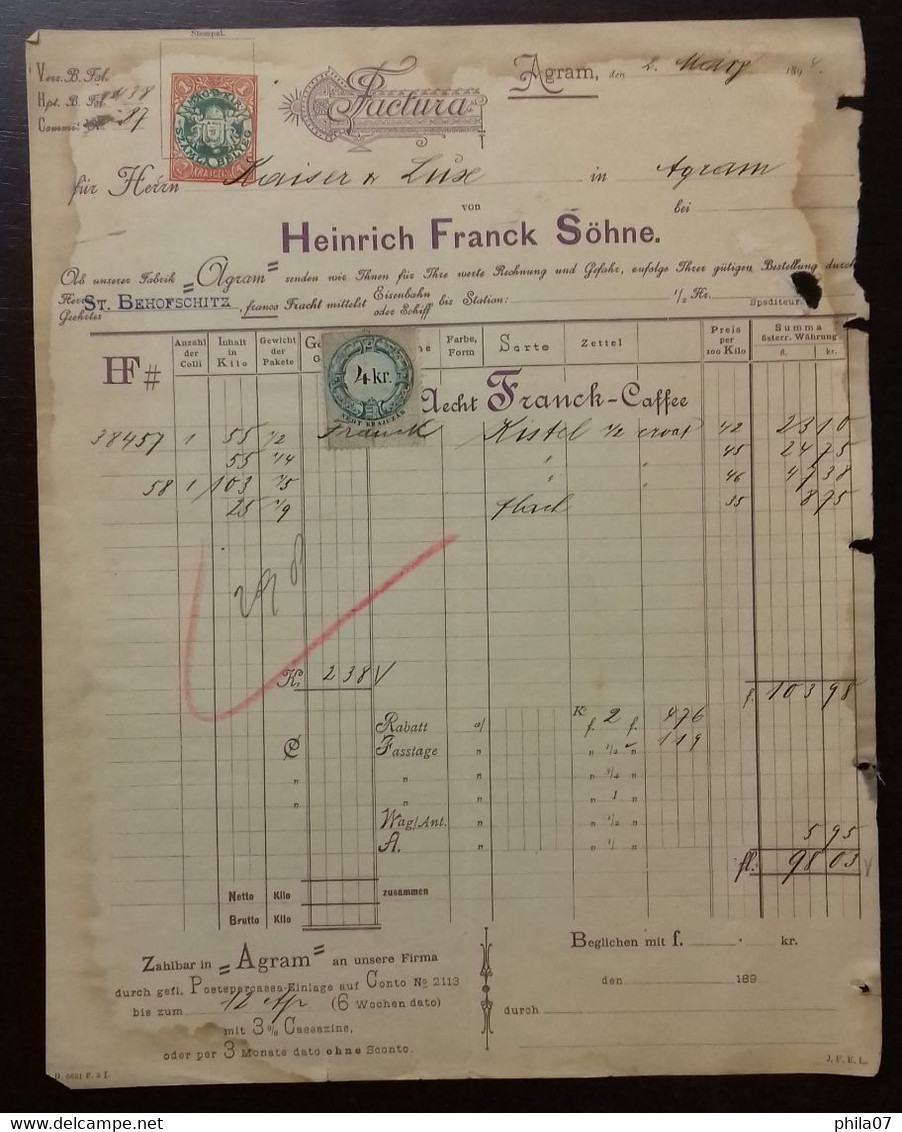 Stempel.
Vers. B. Fol.
Hpt. B. Fol. 38
Commis. 87
1 1
MAGY. KIR.
SZÁMLA BÉLYEG
1 KRAJCZÁR 1
Factura
Agram, den 2. März 189
für Herrn Kaiser & Luxe in Agram
von bei
Heinrich Franck Söhne.
Ab unserer Fabrik "Agram" senden wir Ihnen für Ihre werte Rechnung und Gefahr, zufolge Ihrer gütigen Bestellung durch
Herrn ST. BEHOFSCHITZ, franco Fracht mittelst Eisenbahn oder Schiff bis Station: ½ Kr. Spediteur
Geehrtes
HF # Anzahl der Colli Inhalt in Kilo Gewicht der Pakete Farbe, Form Sorte Zettel Preis per 100 Kilo Summa österr. Währung fl. kr.
4 kr.
Aecht Franck-Caffee
38457 1 55 1/2 Franck Kistel 1/2 croat 42 23 10
55 1/4 " " 45 24 75
58 1 103 1/5 " " 46 47 38
25 1/9 35 8 75
K. 238 f. 103 98
Rabatt a/ K. f. 2 f. 476
₡ Fasstage " " 1/2 " 119
" " " " 3/4 "
" " " " 1 "
Wag/Ant. " " 1/2 " 5 95
A. " " 1/ " fl. 98 03
Netto Kilo zusammen
Brutto Kilo
Zahlbar in "Agram" an unsere Firma
durch gefl. Postsparcassa-Einlage auf Conto No 2113
bis zum 12 Ap (6 Wochen dato)
mit 3% Cassazins,
oder per 3 Monate dato ohne Sconto.
Beglichen mit f. kr.
den 189
durch
D. 6681 F. 3 I.
J. F. E. L.
delcampe.net
phila07